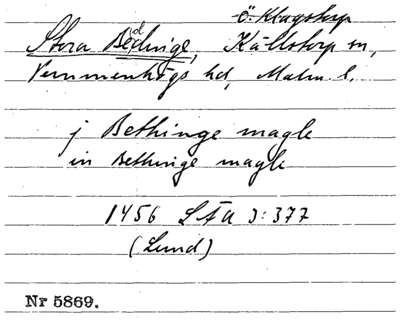 ö. Klagstorp
Stora Beddinge, Källstorp sn,
Vemmenhögs hd, Malm. l.
j Bethinge magle
in Bethinge magle
1456 LÄU 3:377
(Lund)
Nr 5869.